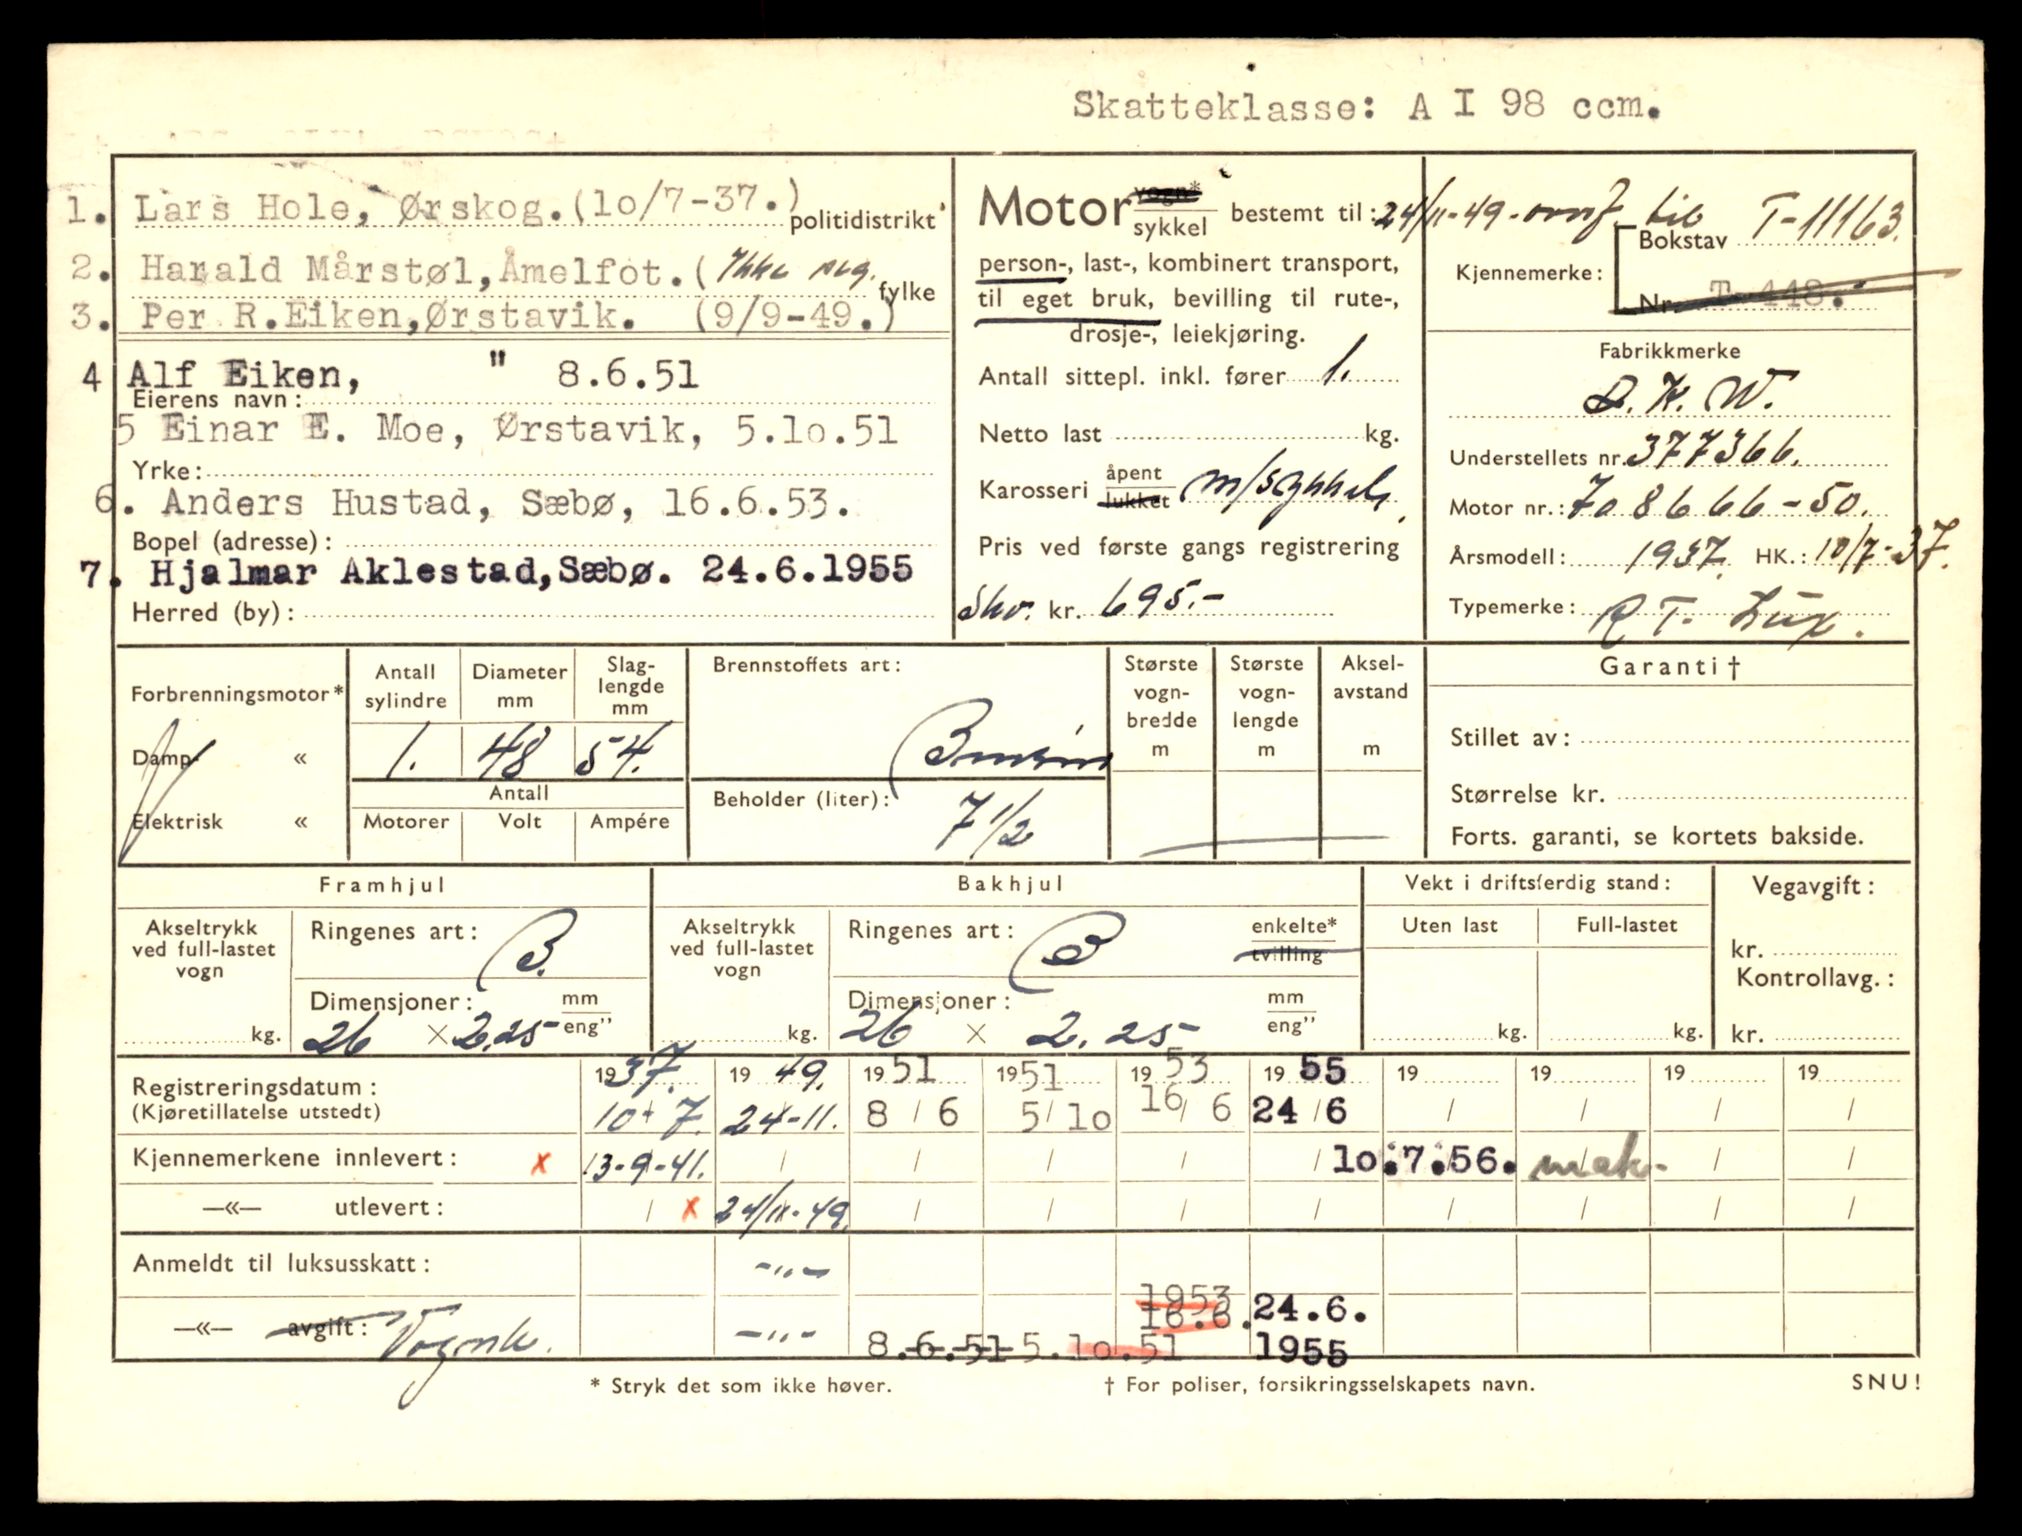 Skatteklasse: A I 98 ccm.
1. Lars Hole, Ørskog. (10/7-37.)
politidistrikt
2. Harald Mårstøl, Åmelfot. (Ikke reg.
fylke
3. Per R. Eiken, Ørstavik. (9/9-49.)
4 Alf Eiken, " 8.6.51
Eierens navn:
5 Einar E. Moe, Ørstavik, 5.10.51
Yrke:
6. Anders Hustad, Sæbø, 16.6.53.
Bopel (adresse):
7. Hjalmar Aklestad, Sæbø. 24.6.1955
Herred (by):
Motor vogn* sykkel bestemt til:
person-, last-, kombinert transport,
til eget bruk, bevilling til rute-,
drosje-, leiekjøring.
Antall sittepl. inkl. fører 1.
Netto last kg.
Karosseri åpent lukket m/sykkel.
Pris ved første gangs registrering
Skv. kr. 695.-
24/11-49 - omf. til T-11163.
Kjennemerke: Bokstav
Nr. T-448.
Fabrikkmerke
D.K.W.
Understellets nr. 377366.
Motor nr.: 708666-50.
Årsmodell: 1937. HK.: 10/7-37.
Typemerke: RT. Lux.
Forbrenningsmotor*
Damp- «
Elektrisk «
Antall sylindre
Diameter mm
Slaglengde mm
1. 48 54.
Antall
Motorer Volt Ampére
Brennstoffets art:
Bensin
Beholder (liter):
7 1/2
Største vognbredde m
Største vognlengde m
Akselavstand m
Garanti †
Stillet av:
Størrelse kr.
Forts. garanti, se kortets bakside.
Framhjul
Akseltrykk ved full-lastet vogn
kg.
Ringenes art: B.
Dimensjoner: mm eng"
26 × 2.25
Bakhjul
Akseltrykk ved full-lastet vogn
kg.
Ringenes art: B enkelte* tvilling
Dimensjoner: mm eng"
26 × 2.25
Vekt i driftsferdig stand:
Uten last Full-lastet
kg. kg.
Vegavgift:
kr.
Kontrollavg.:
kr.
Registreringsdatum: 1937. 19 49. 19 51 19 51 19 53 19 55 19 19 19 19
(Kjøretillatelse utstedt) 10 - 7. 24-11. 8 / 6 5 / 10 16 / 6 24 / 6 / / / /
Kjennemerkene innlevert: x 13-9-41. / / / / 10.7.56. mak. / /
—«— utlevert: / x 24/11-49. / / / / / / / /
Anmeldt til luksusskatt: -"-
—«— avgift: -"- 8.6.51 5.10.51 1953 16.6. 24.6. 1955
* Stryk det som ikke høver.
† For poliser, forsikringsselskapets navn.
SNU!